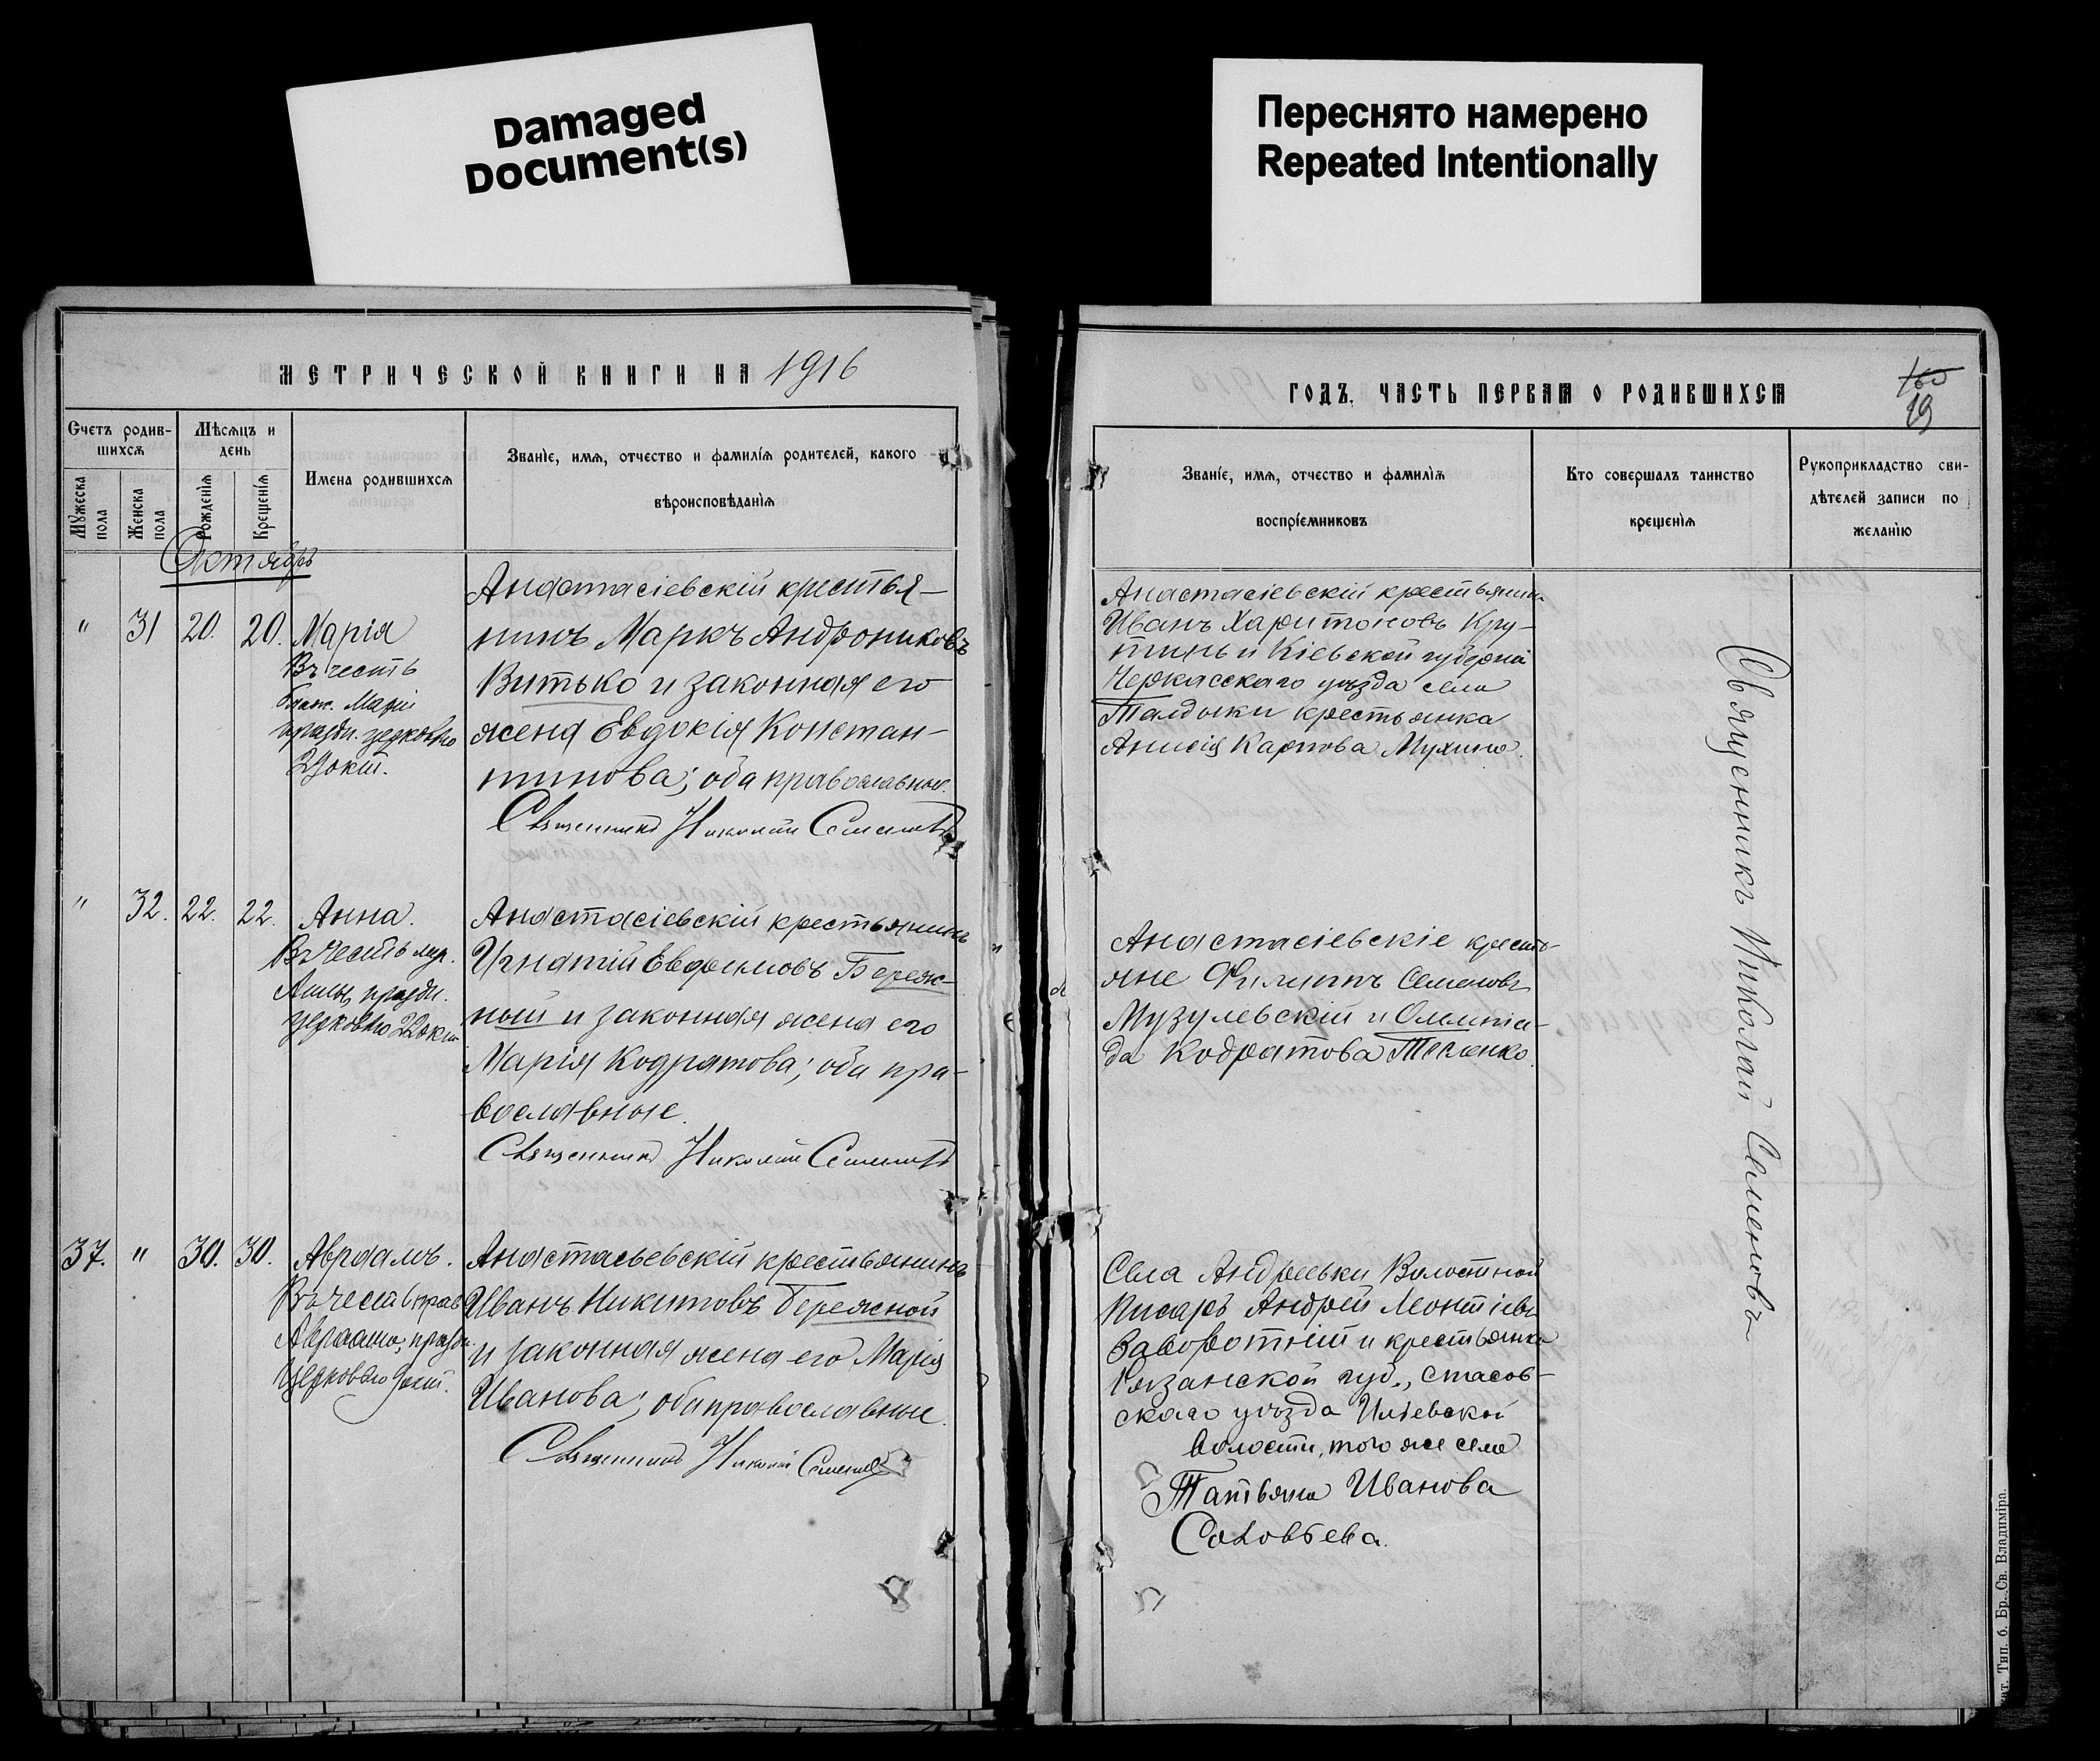 Damaged
Document(s)
Переснято намерено
Repeated Intentionally
МЕТРИЧЕСКОЙ КНИГИ НА 1916
Счетъ родив-
шихся
Мѣсяцъ и
день
Мужеска
пола
Женска
пола
Рожденія
Крещенія
Имена родившихся
Званіе, имя, отчество и фамилія родителей, какого
вѣроисповѣданія
Октябрь
" 31 20. 20. Марія
Въ честь
блаж. Маріи
праздн. церковью
29 окт.
Анастасіевскій крестья-
нинъ Маркъ Андрониковъ
Витько и законная его
жена Евдокія Констан-
тинова; оба православные.
Священникъ Николай Семеновъ
" 32. 22. 22. Анна.
Въ честь
Анны, праздн.
церковью 22 окт.
Анастасіевскій крестьянинъ
Игнатій Евфимовъ Береж-
ный и законная жена его
Марія Кодратова; оба пра-
вославные.
Священникъ Николай Семеновъ
37. " 30. 30. Авраамъ.
Въ честь прав.
Авраама, праздн.
церковью 9 окт.
Анастасьевскій крестьянинъ
Иванъ Никитовъ Бережной
и законная жена его Марія
Иванова; оба православные.
Священникъ Николай Семеновъ
ГОДЪ, ЧАСТЬ ПЕРВАЯ О РОДИВШИХСЯ
160
19
Званіе, имя, отчество и фамилія
воспріемниковъ
Кто совершалъ таинство
крещенія
Рукоприкладство сви-
дѣтелей записи по
желанію
Анастасіевскій крестьянинъ
Иванъ Харитоновъ Кру-
и Кіевской губерніи
Черкасскаго уѣзда села
крестьянка
Анисія Карпова Мухина.
Анастасіевскіе кресть-
яне Филиппъ Семеновъ
Музулевскій и Олимпіа-
да Кодратова Тесленко.
Села Андреевки Волостной
Писарь Андрей Леонтіевъ
Заворотній и крестьянка
Рязанской губ., Спасов-
скаго уѣзда Ижевской
волости, того же села
Татьяна Иванова
Соловьева.
Священникъ Николай Семеновъ
Тип. б. Бр. Св. Владиміра.